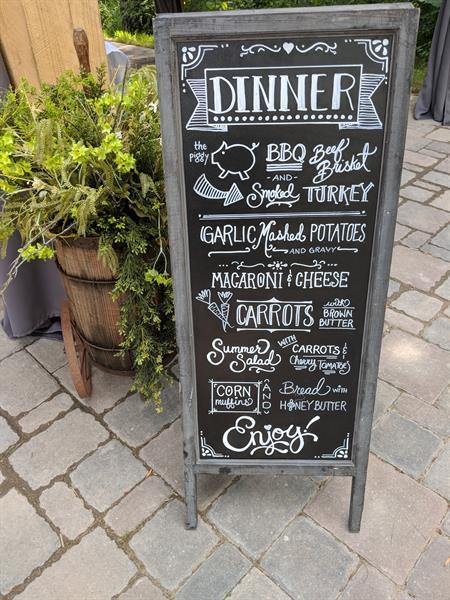 DINNER
the piggy BBQ Beef Brisket
-AND-
Smoked TURKEY
GARLIC Mashed POTATOES
AND GRAVY
MACARONI & CHEESE
CARROTS with BROWN BUTTER
Summer Salad WITH CARROTS & Cherry TOMATOES
CORN muffins AND Bread WITH HONEY BUTTER
Enjoy!